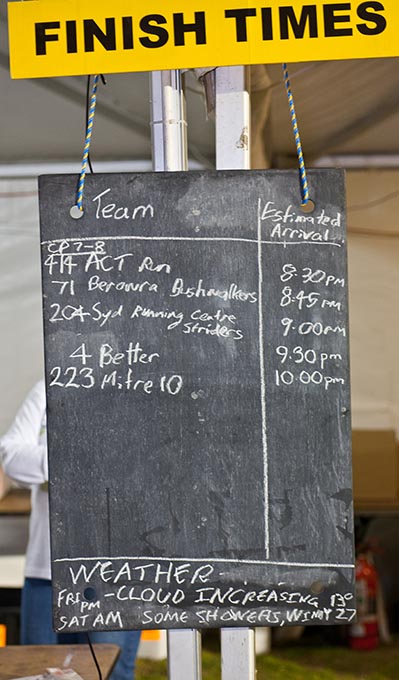 FINISH TIMES
Team Estimated Arrival
CP 7-8
414 ACT Run 8:30pm
71 Berowra Bushwalkers 8:45pm
204 Syd Running Centre Striders 9:00pm
4 Better 9:30pm
223 Mitre 10 10:00pm
WEATHER-
FRI PM - CLOUD INCREASING 13°
SAT AM SOME SHOWERS, WINDY 27